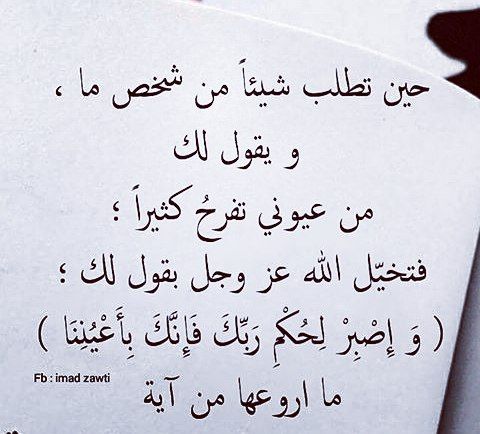 حين تطلب شيئاً من شخص ما ،
و يقول لك
من عيوني تفرحُ كثيراً ؛
فتخيّل الله عز وجل بقول لك ؛
( وَ إِصْبِرْ لِحُكْمِ رَبِّكَ فَإِنَّكَ بِأَعْيُنِنَا )
Fb : imad zawti
ما اروعها من آية